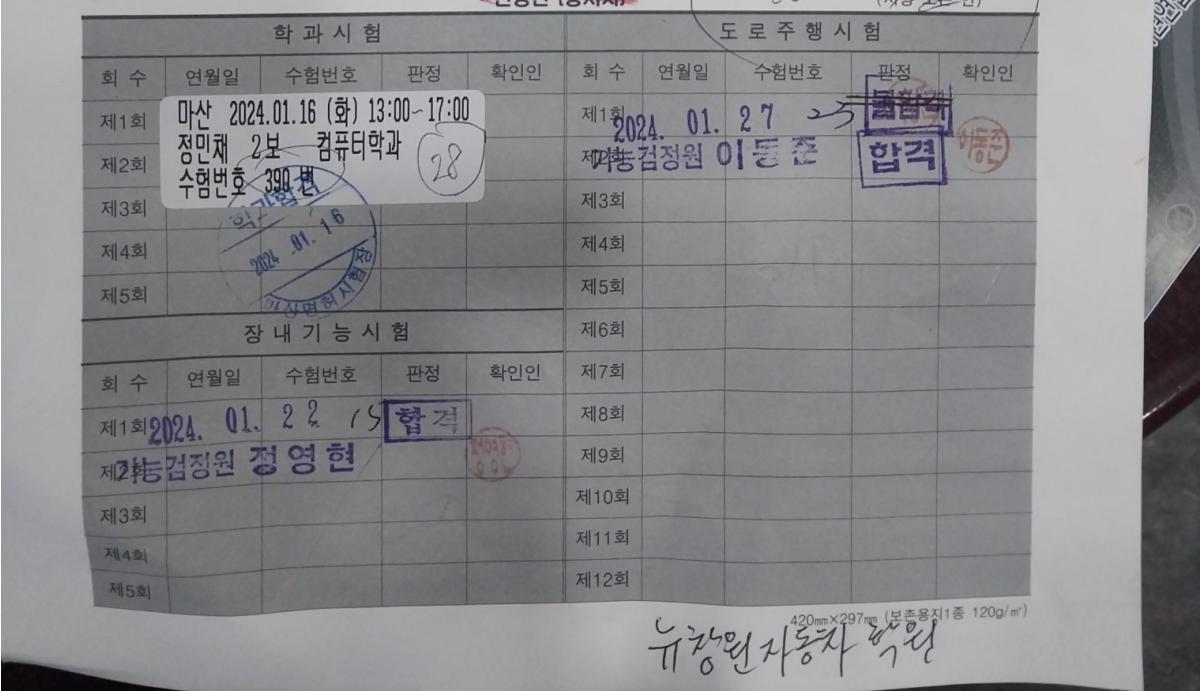 학과시험
회 수 연월일 수험번호 판정 확인인
제1회
마산 2024.01.16 (화) 13:00~17:00
제2회
정민채 2보 컴퓨터학과
28
수험번호 390 번
제3회
학과합격
제4회
2024.01.16
제5회
마산면허시험장
장내기능시험
회 수 연월일 수험번호 판정 확인인
제1회 2024. 01. 22 15 합격
제2회 기능검정원 정영현
제3회
제4회
제5회
도로주행시험
회 수 연월일 수험번호 판정 확인인
제1회 2024. 01. 27 25 불합격
제2회 기능검정원 이동준 합격 이동준
제3회
제4회
제5회
제6회
제7회
제8회
제9회
제10회
제11회
제12회
420㎜×297㎜ (보존용지1종 120g/㎡)
뉴창원자동차 학원